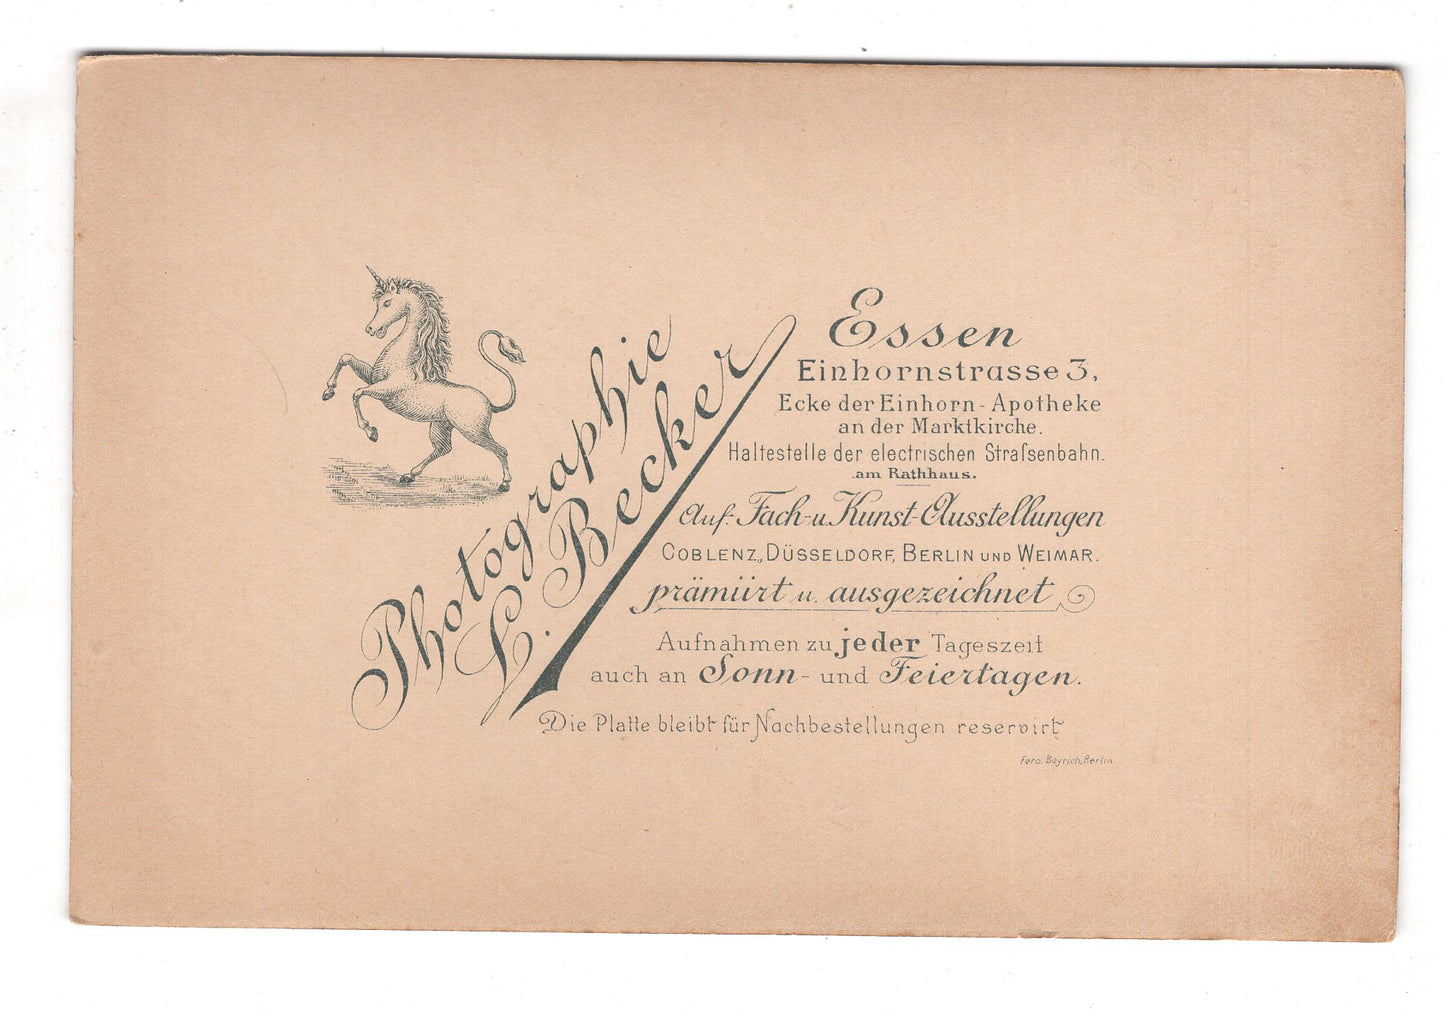 Photographie
L. Becker
Essen
Einhornstrasse 3,
Ecke der Einhorn-Apotheke
an der Marktkirche.
Haltestelle der electrischen Straſsenbahn.
am Rathhaus.
Auf Fach- u. Kunst-Ausstellungen
COBLENZ, DÜSSELDORF, BERLIN UND WEIMAR.
prämiirt u. ausgezeichnet
Aufnahmen zu jeder Tageszeit
auch an Sonn- und Feiertagen.
Die Platte bleibt für Nachbestellungen reservirt
Ferd. Beyrich, Berlin.